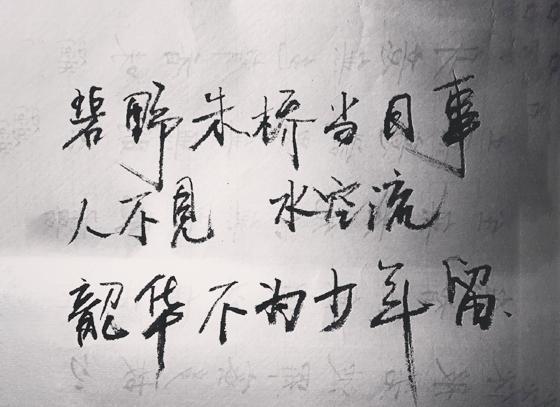 碧野朱桥当日事
人不见 水空流
韶华不为少年留